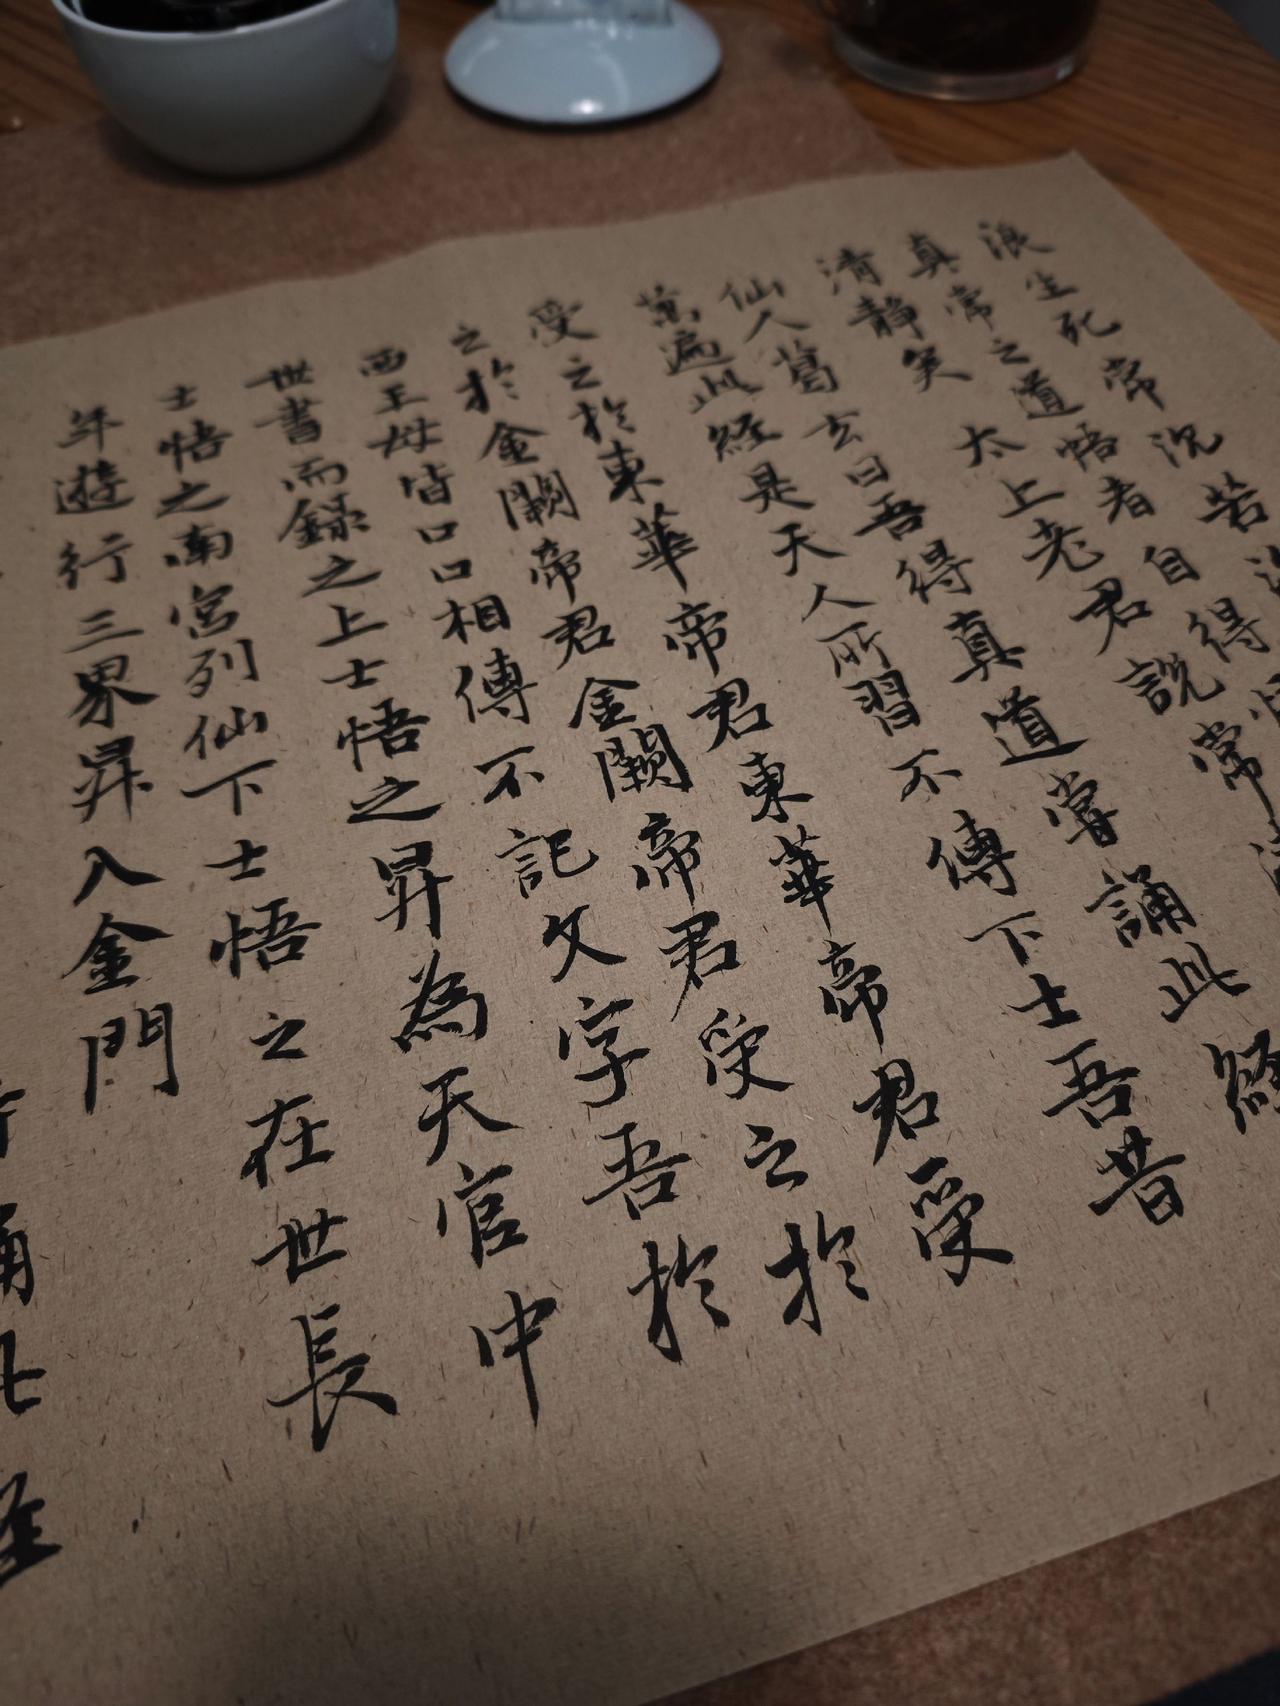 浪生死常沉苦
真常之道悟者自得
清静矣 太上老君說常
仙人葛玄曰吾得真道嘗誦此經
萬遍此經是天人所習不傳下士吾昔
受之於東華帝君東華帝君受
之於金闕帝君金闕帝君受之於
西王母皆口口相傳不記文字吾於
世書而錄之上士悟之昇為天官中
士悟之南宮列仙下士悟之在世長
年遊行三界昇入金門